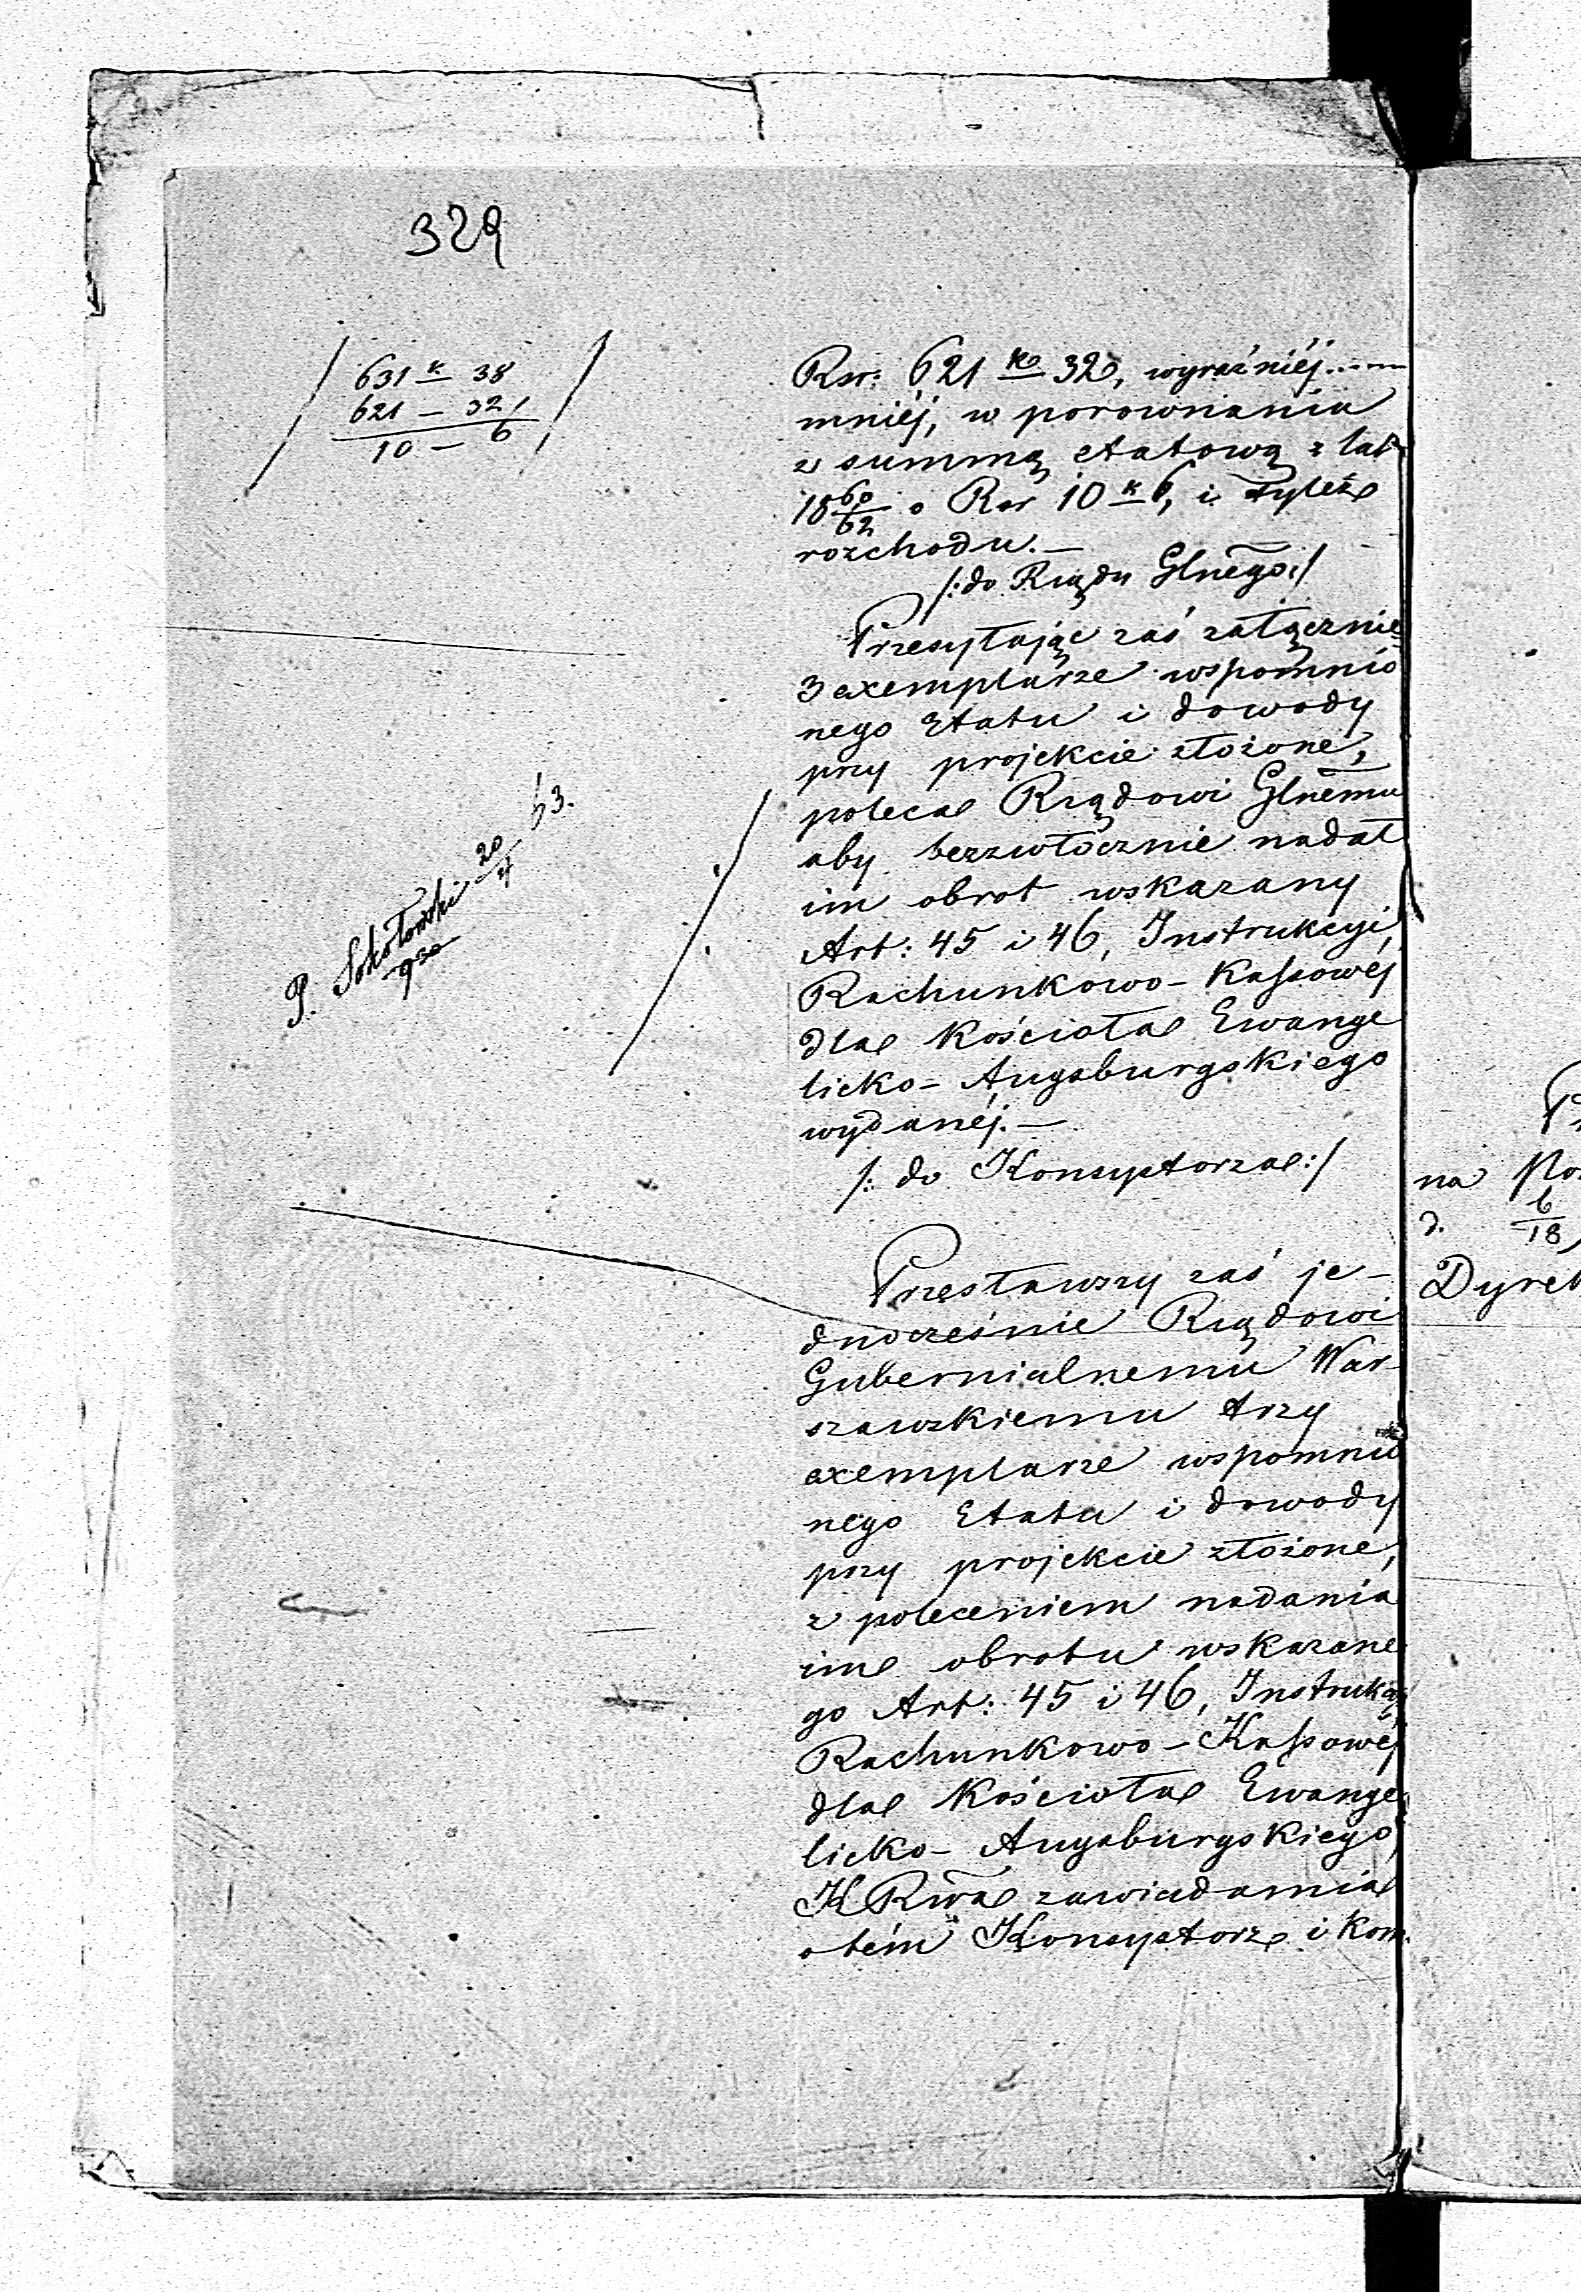 329
631 k 38
621 — 32
10 — 6
P. Sokołowski 20/4 63.
Rsr: 621 ko 32, wyraźniéj......
mniéj, w porownaniu
z summą etatową z lat
18 60/62 o Rsr 10 k 6, i tyleż
rozchodu. —
/: do Rządu Glnego :/
Przesyłając zaś załącznie
3 exemplarze wspomnio
nego Etatu i dowody
przy projekcie złożone,
poleca Rządowi Glnemu
aby bezzwłocznie nadał
im obrot wskazany
Art: 45 i 46, Instrukcyi,
Rachunkowo-Kassowéj
dla Kościoła Ewange
licko-Augsburgskiego
wydanéj. —
/: do Konsystorza :/
Przesławszy zaś je-
dnocześnie Rządowi
Gubernialnemu War-
szawskiemu trzy
exemplarze wspomnio
nego Etatu i dowody
przy projekcie złożone,
z poleceniem nadania
im obrotu wskazane
go Art: 45 i 46, Instrukcyi
Rachunkowo-Kassowéj
dla Kościoła Ewange
licko-Augsburgskiego,
K Rwa zawiadamia
o tém Konsystorz i Kom.
na
d. 6/18
Dyrek